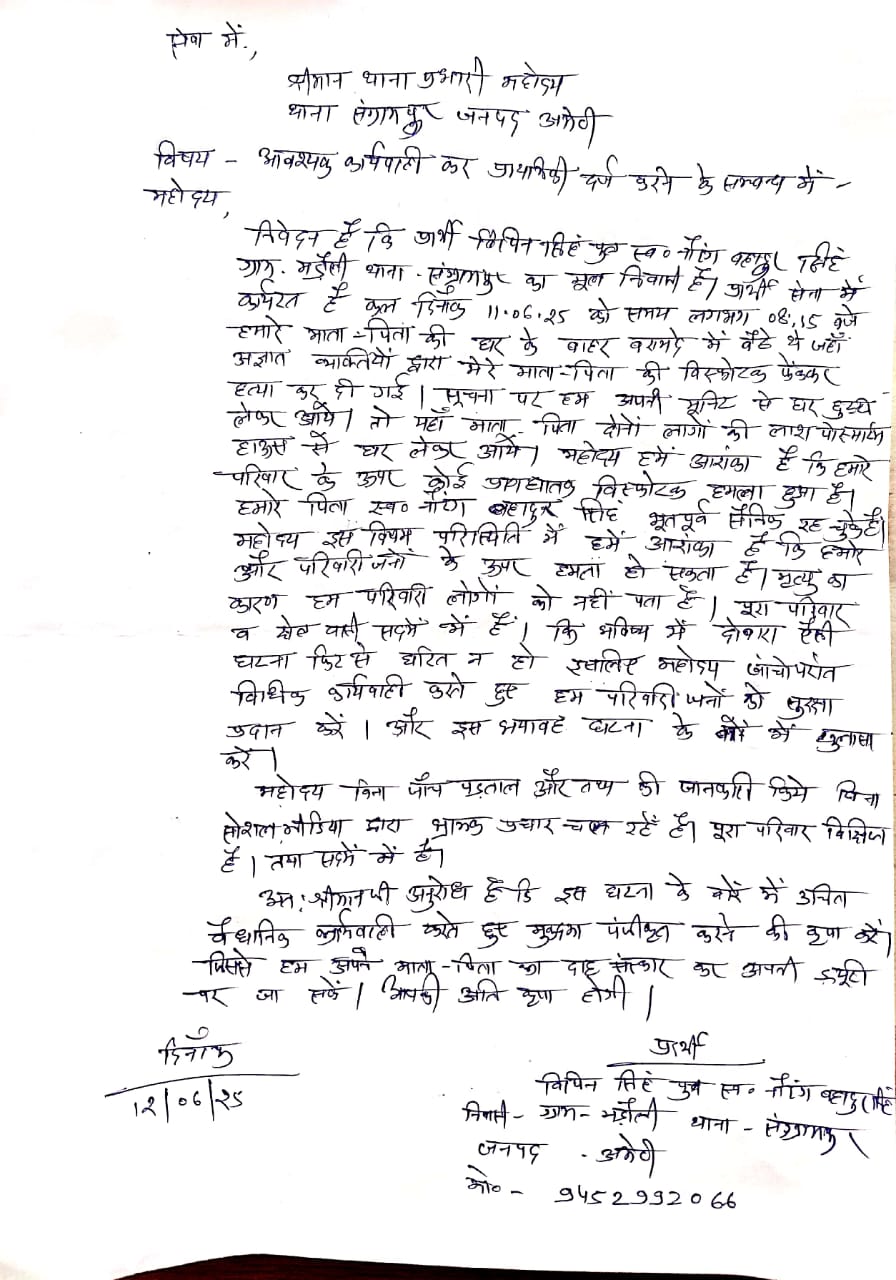 सेवा में.,
श्रीमान थाना प्रभारी महोदय
थाना संग्रामपुर जनपद अमेठी
विषय - आवश्यक कार्यवाही कर प्राथमिकी दर्ज करने के सम्बन्ध में -
महोदय,
निवेदन है कि प्रार्थी विपिन सिंह पुत्र स्व० नौरंग बहादुर सिंह
ग्राम. भड़ौली थाना - संग्रामपुर का मूल निवासी है। प्रार्थी सेना में
कार्यरत है कल दिनाँक 11.06.25 को समय लगभग 08:15 बजे
हमारे माता-पिता की घर के बाहर बरामदे में बैठे थे जहाँ
अज्ञात व्यक्तियों द्वारा मेरे माता-पिता की विस्फोटक फेंककर
हत्या कर दी गई। सूचना पर हम अपनी यूनिट से घर छुट्टी
लेकर आये। तो यहाँ माता-पिता दोनों लोगों की लाश पोस्मार्टम
हाऊस से घर लेकर आये। महोदय हमें आशंका है कि हमारे
परिवार के ऊपर कोई प्राणघातक विस्फोटक हमला हुआ है।
हमारे पिता स्व० नौरंग बहादुर सिंह भूतपूर्व सैनिक रह चुके है।
महोदय इस विषम परिस्थिति में हमें आशंका है कि हमारे
और परिवारी जनों के ऊपर हमला हो सकता है। मृत्यु का
कारण हम परिवारी लोगों को नहीं पता है। पूरा परिवार
व क्षेत्र वासी सदमें में हैं। कि भविष्य में दोबारा ऐसी
घटना फिर से घटित न हो इसलिए महोदय जांचोपरांत
विधिक कार्यवाही करते हुए हम परिवारी जनों को सुरक्षा
प्रदान करें। और इस भयावह घटना के बारे में खुलासा
करें।
महोदय बिना जाँच पड़ताल और तथ्य की जानकारी किये बिना
सोशल मीडिया द्वारा भ्रामक प्रचार चल रहें है। पूरा परिवार विक्षिप्त
है। तथा सदमें में है।
अत: श्रीमान जी अनुरोध है कि इस घटना के बारे में उचित
वैधानिक कार्यवाही करते हुए मुकदमा पंजीकृत करने की कृपा करें।
जिससे हम अपने माता-पिता का दाह संस्कार कर अपनी ड्यूटी
पर जा सकें। आपकी अति कृपा होगी।
दिनाँक
12/06/25
प्रार्थी
विपिन सिंह पुत्र स्व. नौरंग बहादुर सिंह
निवासी - ग्राम - भड़ौली थाना - संग्रामपुर
जनपद - अमेठी
मो० - 9452992066